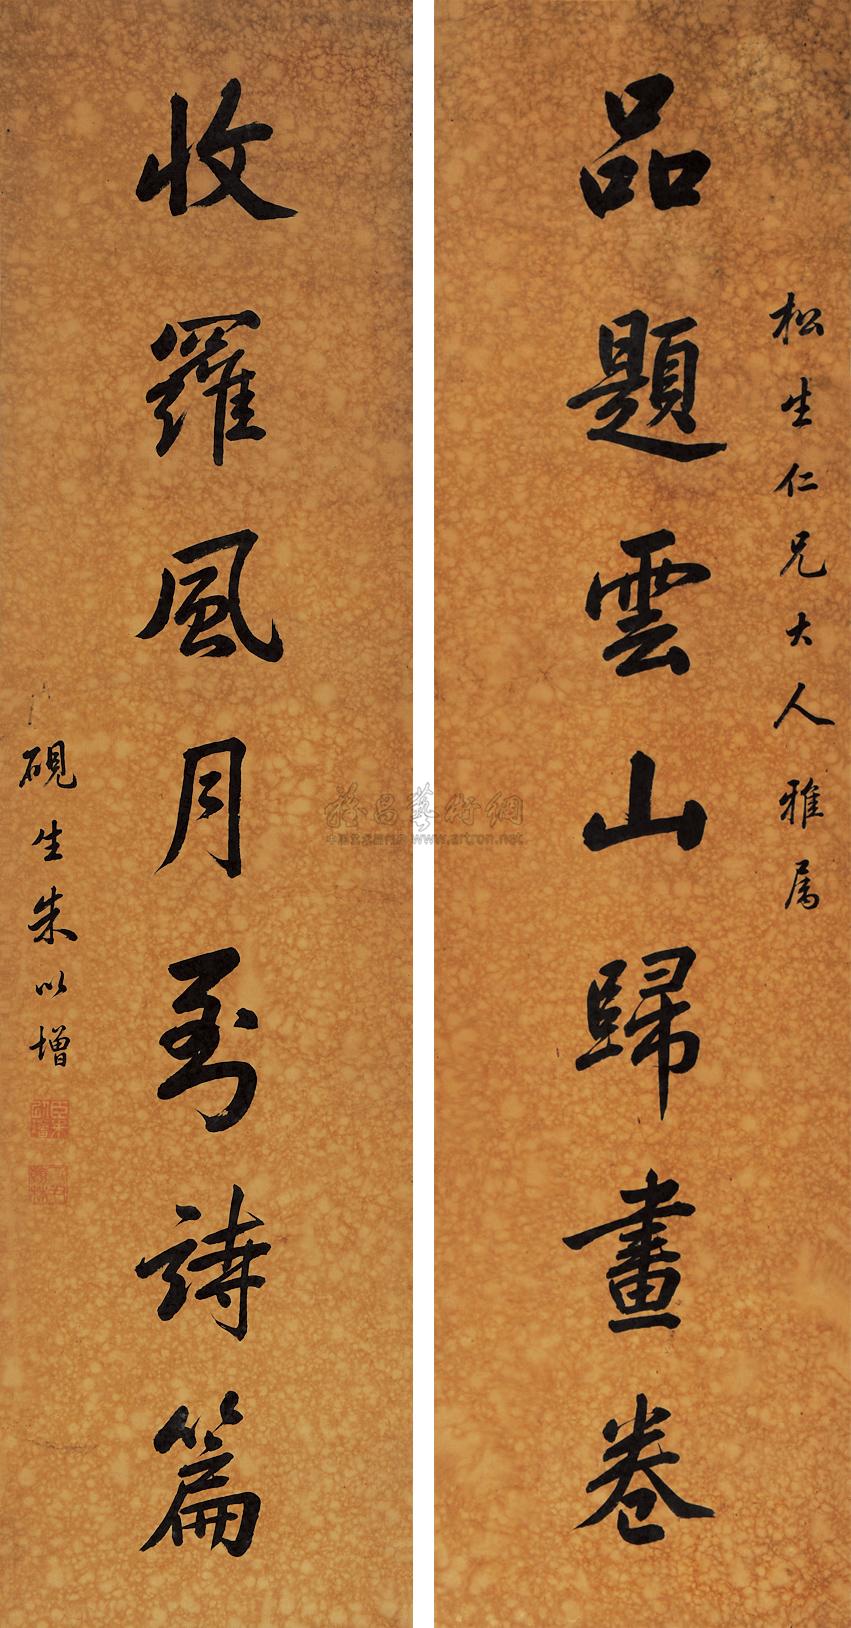 松生仁兄大人雅属
品題雲山歸畫卷
收羅風月到詩篇
硯生朱以增
www.artron.net